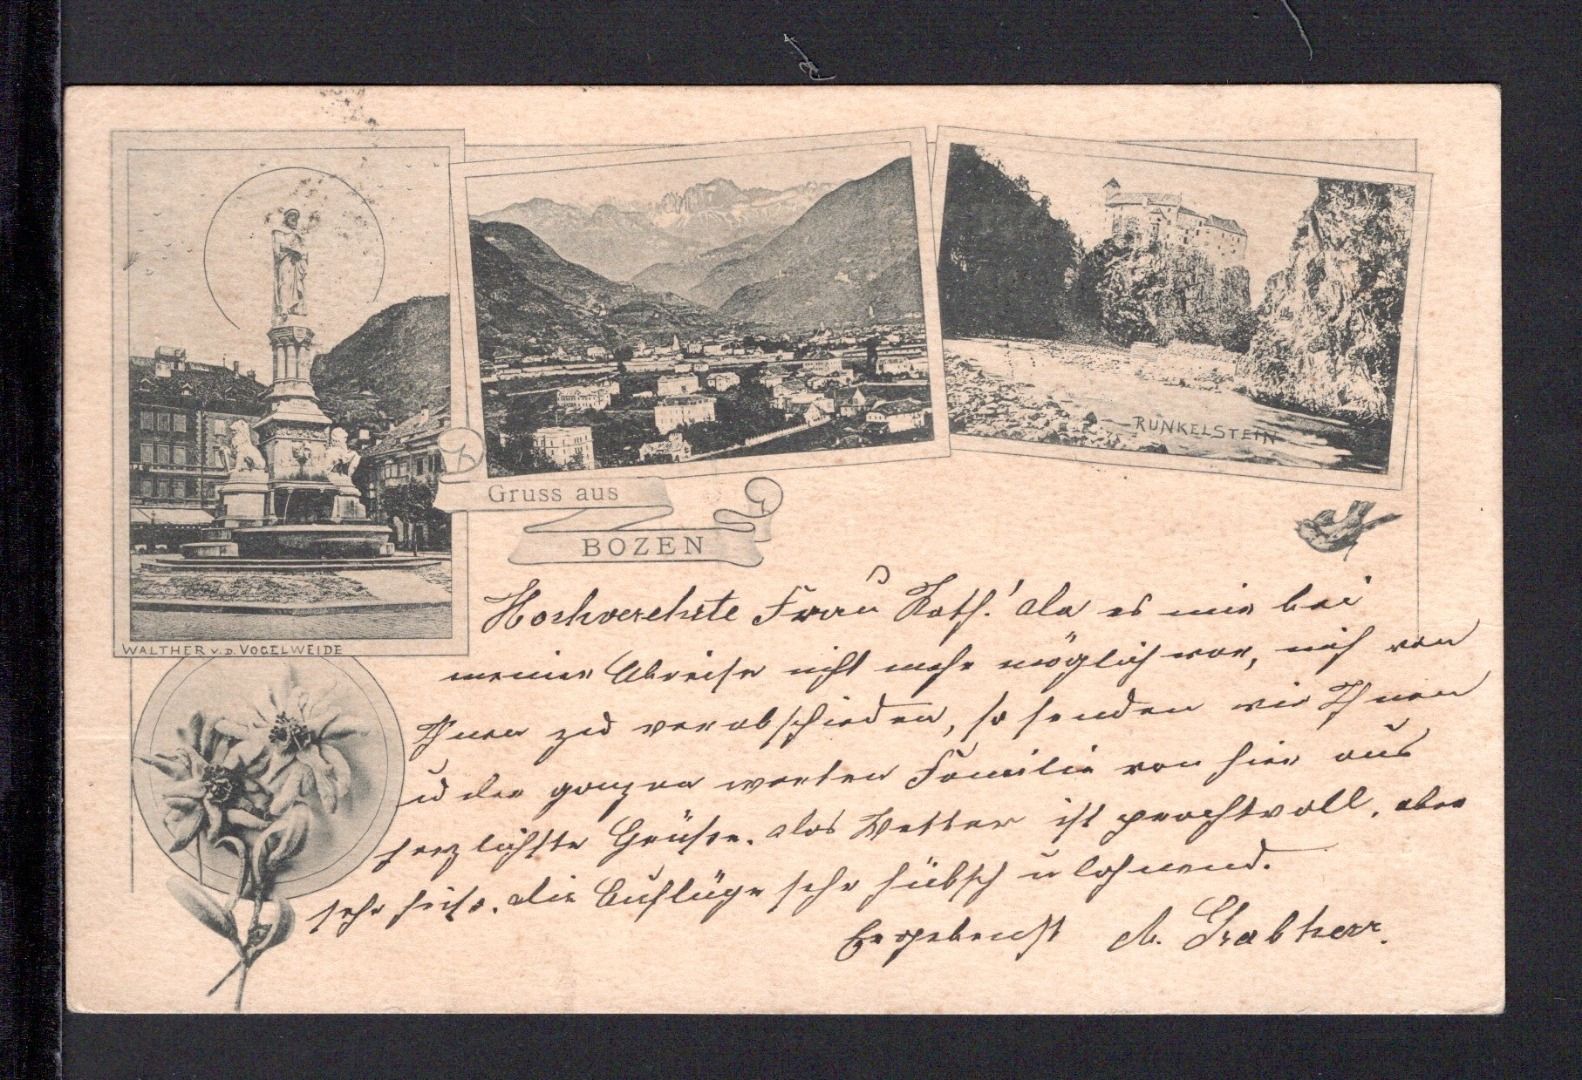 WALTHER v. D. VOGELWEIDE
Gruss aus
BOZEN
RUNKELSTEIN
Hochverehrte Frau Rath! Da es mir bei
meiner Abreise nicht mehr möglich war, mich von
Ihnen zu verabschieden, so senden wir Ihnen
u der ganzen werten Familie von hier aus
herzlichste Grüße. Das Wetter ist prachtvoll, aber
sehr heiß. Die Ausflüge sehr hübsch u lohnend.
Ergebenst A. Grabherr.